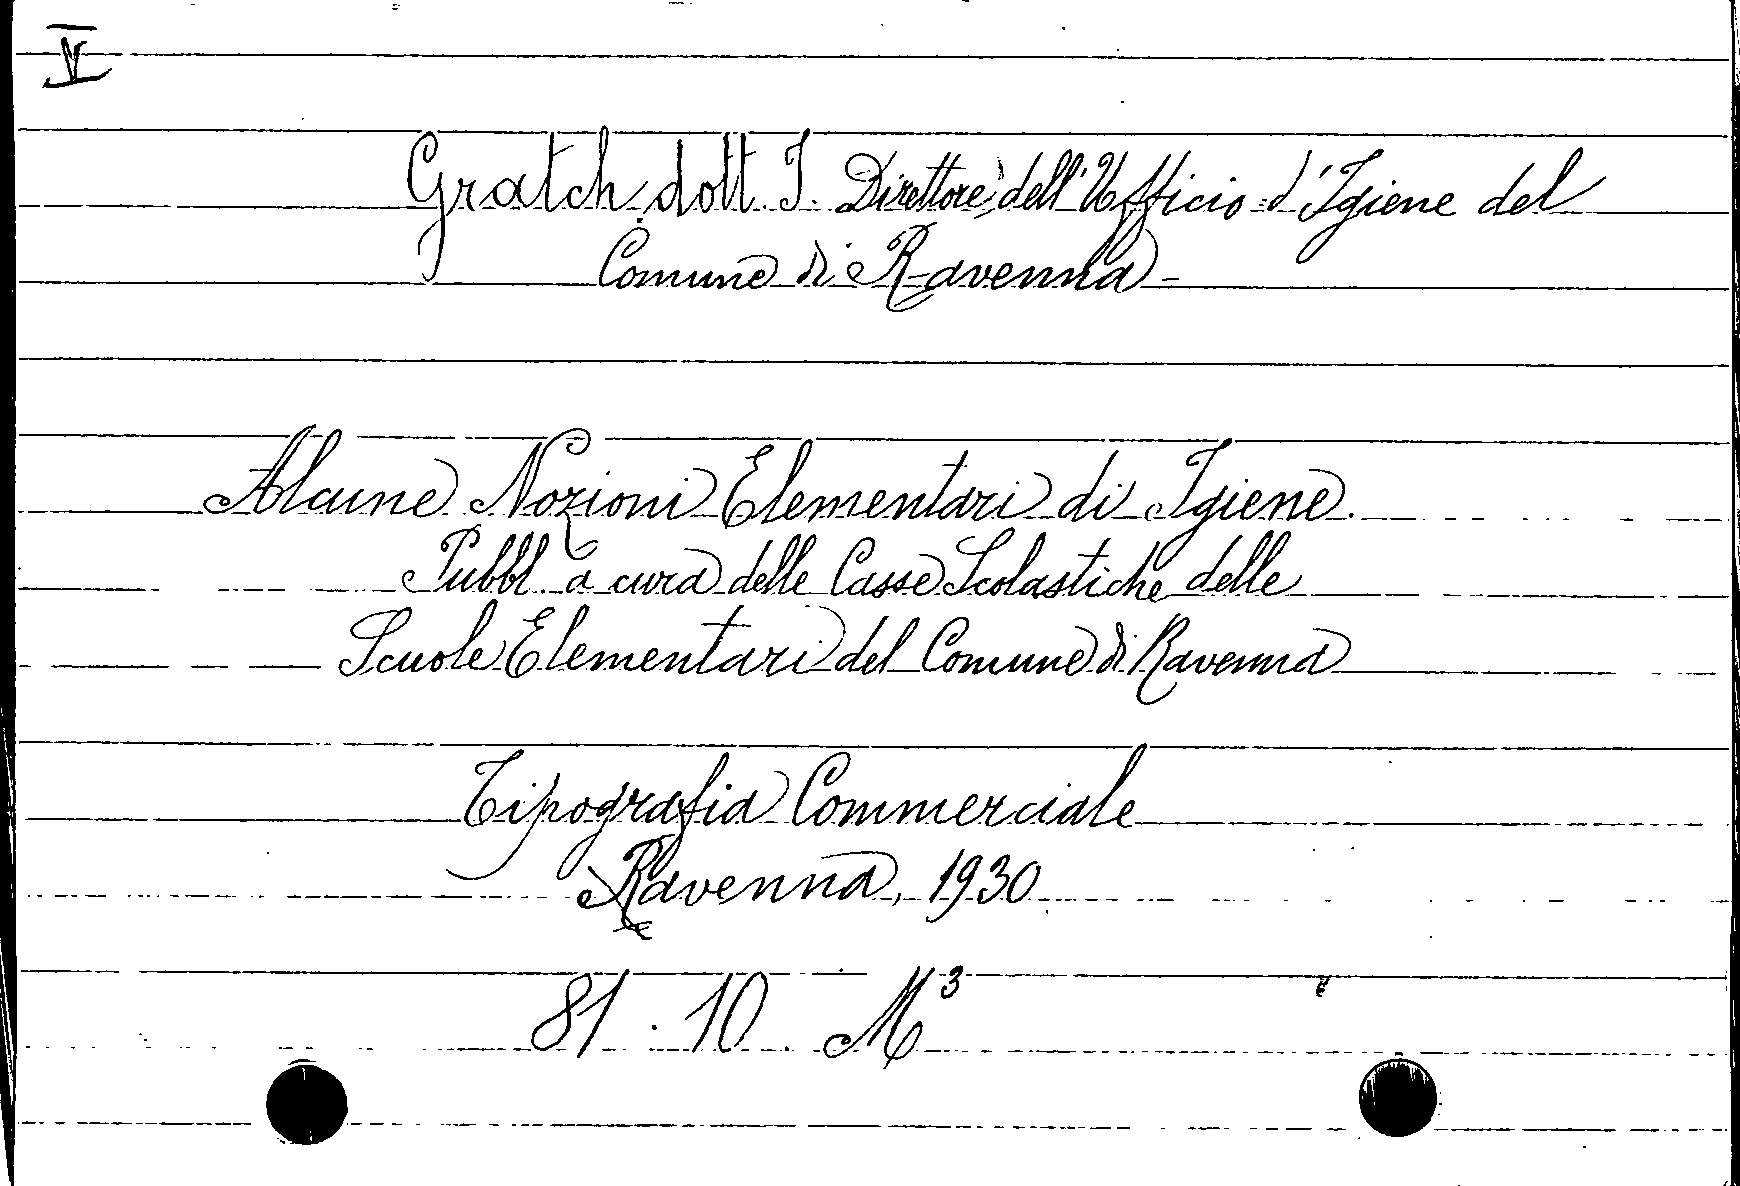 V
Gratch dott. I. Direttore dell'Ufficio d'Igiene del
Comune di Ravenna -
Alcune Nozioni Elementari di Igiene.
Pubbl. a cura delle Casse Scolastiche delle
Scuole Elementari del Comune di Ravenna
Tipografia Commerciale
Ravenna, 1930
81 . 10 . M³